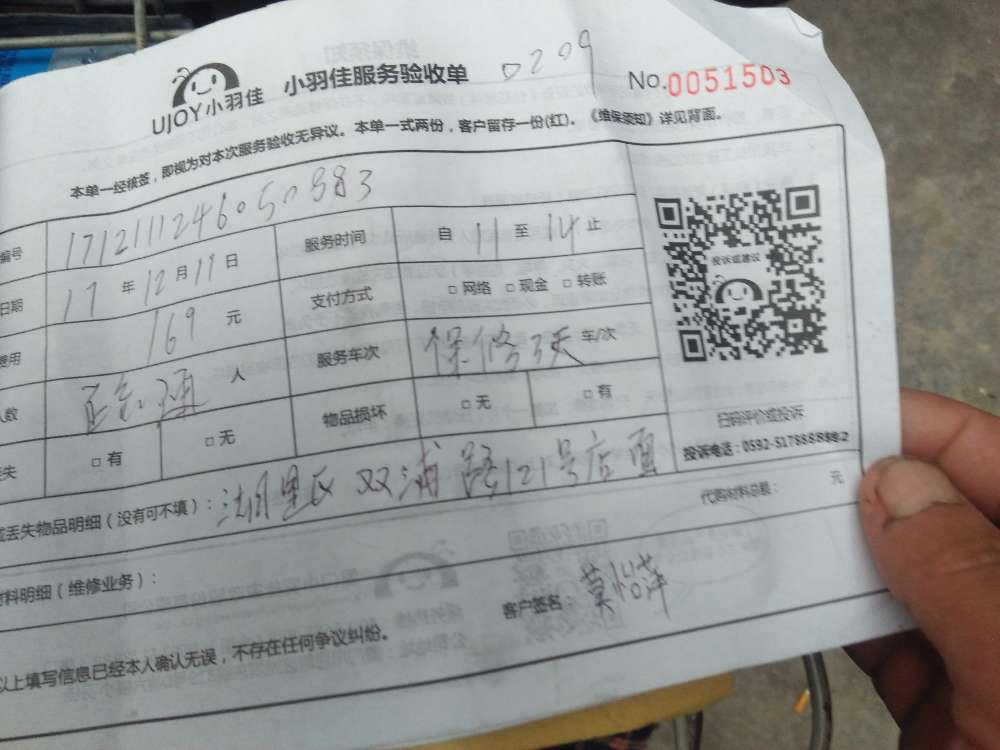 UJOY小羽佳 小羽佳服务验收单 0209 No.0051503
本单一经核签，即视为对本次服务验收无异议。本单一式两份，客户留存一份(红)。《维保须知》详见背面。
编号 171211124605 0883 服务时间 自 11 至 14 止
日期 17 年 12 月 11 日 支付方式 □ 网络 □ 现金 □ 转账
费用 169 元 服务车次 保修3天 车/次
人数 人 物品损坏 □ 无 □ 有
失 □ 有 □ 无
投诉或建议
扫码评价或投诉
投诉电话：0592-5178888转2
丢失物品明细（没有可不填）： 湖里区双浦路121号店面
代购材料总额： 元
料明细（维修业务）：
客户签名： 莫怡萍
以上填写信息已经本人确认无误，不存在任何争议纠纷。